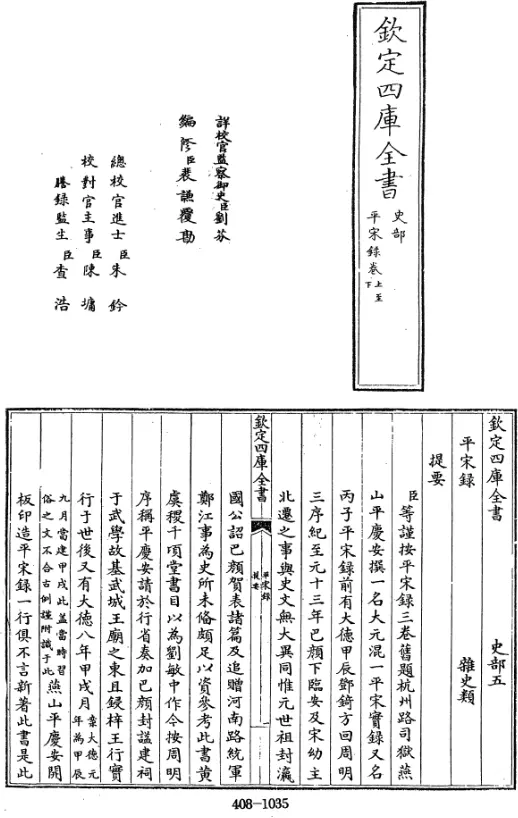 欽定四庫全書
史部
平宋録卷上至下
詳校官監察御史臣劉芬
編修臣裴謙覆勘
總校官進士臣朱鈐
校對官主事臣陳墉
謄録監生臣查浩
欽定四庫全書 史部五
平宋録 雜史類
提要
臣等謹按平宋録三卷舊題杭州路司獄燕
山平慶安撰一名大元混一平宋實録又名
丙子平宋録前有大德甲辰鄧錡方回周明
三序紀至元十三年巴顔下臨安及宋幼主
北遷之事與史文無大異同惟元世祖封瀛
欽定四庫全書 平宋録 提要
國公詔巴顔賀表諸篇及追贈河南路統軍
鄭江事為史所未偹頗足以資參考此書黄
虞稷千頃堂書目以為劉敏中作今按周明
序稱平慶安請於行省奏加巴顔封諡建祠
于武學故基武城王廟之東且鋟梓王行實
行于世後又有大德八年甲戌月案大德元年為甲辰
九月當建甲戌此盖當時習俗之文不合古例謹附識于此燕山平慶安開
板印造平宋録一行俱不言新著此書是此
408-1035